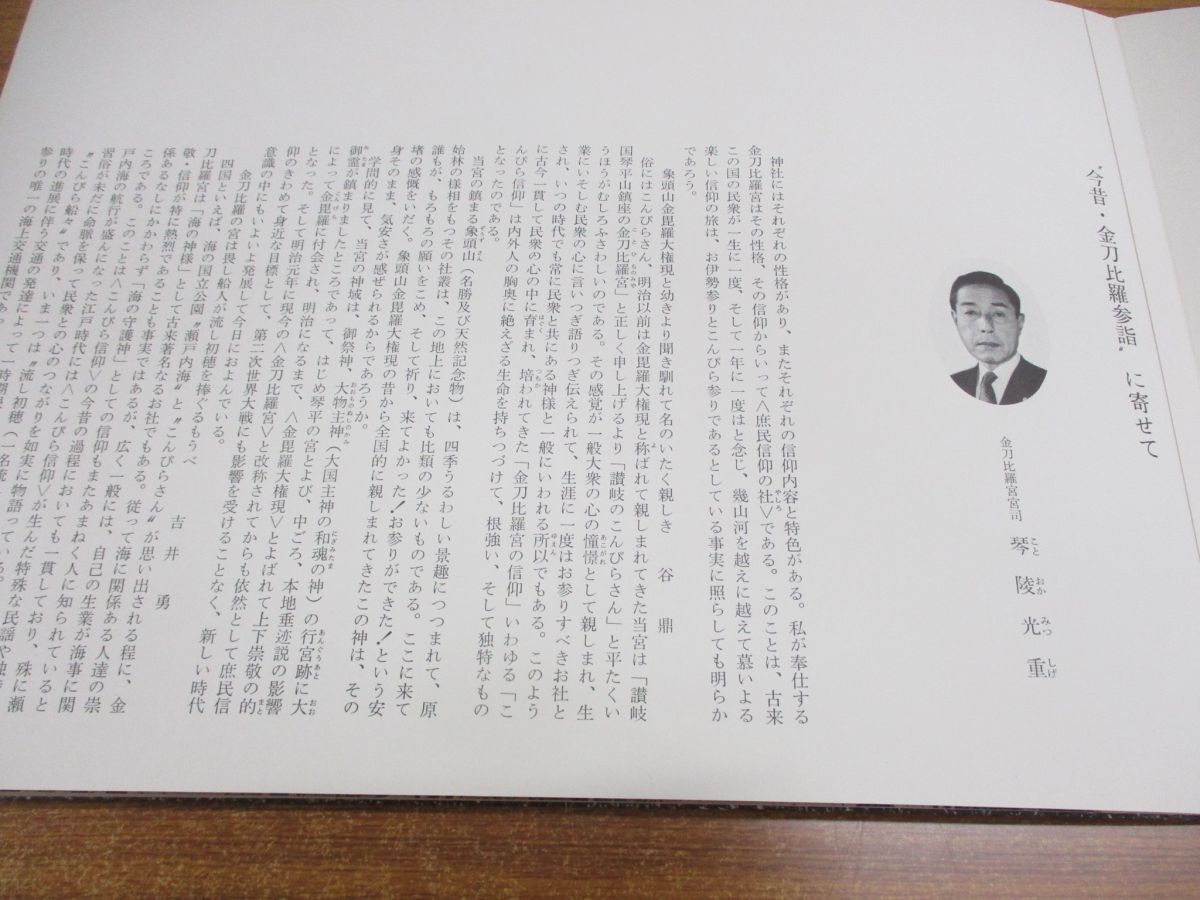 〝今昔・金刀比羅参詣〟に寄せて
金刀比羅宮宮司 琴陵光重
こと おか みつ しげ
神社にはそれぞれの性格があり、またそれぞれの信仰内容と特色がある。私が奉仕する
金刀比羅宮はその性格、その信仰からいって〈庶民信仰の社〉である。このことは、古来
この国の民衆が一生に一度、そして一年に一度はと念じ、幾山河を越えに越えて慕いよる
楽しい信仰の旅は、お伊勢参りとこんぴら参りであるとしている事実に照らしても明らか
であろう。
象頭山金毘羅大権現と幼きより聞き馴れて名のいたく親しき 谷 鼎
俗にはこんぴらさん、明治以前は金毘羅大権現と称ばれて親しまれてきた当宮は「讃岐
国琴平山鎮座の金刀比羅宮」と正しく申し上げるより「讃岐のこんぴらさん」と平たくい
うほうがむしろふさわしいのである。その感覚が一般大衆の心の憧憬として親しまれ、生
業にいそしむ民衆の心に言いつぎ語りつぎ伝えられて、生涯に一度はお参りすべきお社と
され、いつの時代でも常に民衆と共にある神様と一般にいわれる所以でもある。このよう
に古今一貫して民衆の心の中に育まれ、培われてきた「金刀比羅宮の信仰」いわゆる「こ
んぴら信仰」は内外人の胸奥に絶えざる生命を持ちつづけて、根強い、そして独特なもの
となったのである。
当宮の鎮まる象頭山（名勝及び天然記念物）は、四季うるわしい景趣につつまれて、原
始林の様相をもつその社叢は、この地上においても比類の少ないものである。ここに来て
誰もが、もろもろの願いをこめ、そして祈り、来てよかった！お参りができた！という安
堵の感慨をいだく。象頭山金毘羅大権現の昔から全国的に親しまれてきたこの神は、その
身そのまま、気安さが感ぜられるからであろうか。
学問的に見て、当宮の神域は、御祭神、大物主神（大国主神の和魂の神）の行宮跡に大
御霊が鎮まりましたところであって、はじめ琴平の宮とよび、中ごろ、本地垂迹説の影響
によって金毘羅に付会され、明治になるまで、〈金毘羅大権現〉とよばれて上下崇敬の的
となった。そして明治元年に現今の〈金刀比羅宮〉と改称されてからも依然として庶民信
仰のきわめて身近な目標として、第二次世界大戦にも影響を受けることなく、新しい時代
意識の中にもいよいよ発展して今日におよんでいる。
金刀比羅の宮は畏し船人が流し初穂を捧ぐるもうべ 吉井 勇
四国といえば、海の国立公園〝瀬戸内海〟と〝こんぴらさん〟が思い出される程に、金
刀比羅宮は「海の神様」として古来著名なるお社でもある。従って海に関係ある人達の崇
敬・信仰が特に熱烈であることも事実ではあるが、広く一般には、自己の生業が海事に関
係あるなしにかかわらず「海の守護神」としての信仰もまたあまねく人に知られていると
ころである。このことは〈こんぴら信仰〉の今昔の過程においても一貫しており、殊に瀬
戸内海の航行が盛んになった江戸時代には〈こんぴら信仰〉が生んだ特殊な民謡や
習俗が未だに命脈を保って民衆との心のつながりを如実に物語っている。
〝こんぴら船々〟であり、いま一つは〝流し初穂（一名流
時代の進展に伴う交通の発達によって一時期
参りの唯一の海上交通機関であ